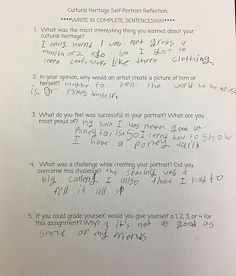 Cultural Heritage Self-Portrait Reflection
****WRITE IN COMPLETE SENTENCES!!!!****
1. What was the most interesting thing you learned about your
cultural heritage?
I only learnd I was not greas a
month or 2 ago so I got to
learn cool stuff like there clothing.
2. In your opinion, why would an artist create a picture of him or
herself? to tell the world who he
is. Or express himself.
3. What do you feel was successful in your portrait? What are you
most proud of? my hair I was never good at
Poneytails so I lernd how to show
I have a poney tail
4. What was a challenge while creating your portrait? Did you
overcome this challenge? the spacing was a
big calleng I allso that I had to
fill it all up
5. If you could grade yourself, would you give yourself a 1, 2, 3, or 4 for
this assignment? Why? 3 it's not as good as
some of my friends